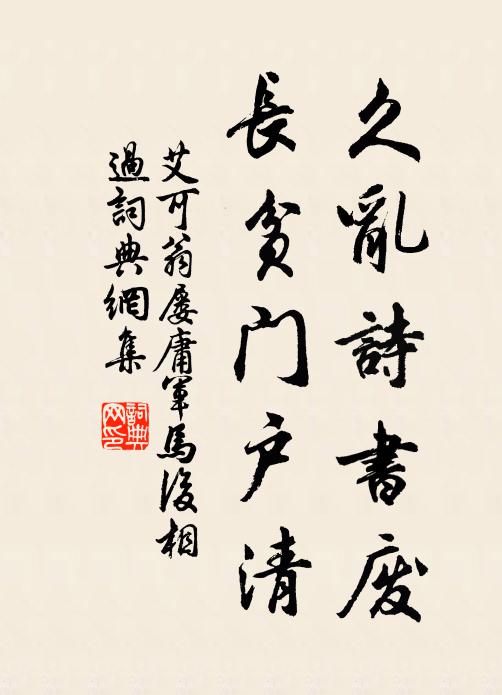 久亂詩書廢
長貧門户清
艾可翁屡庸軍馬後相
過詞典網集
詞典
网印